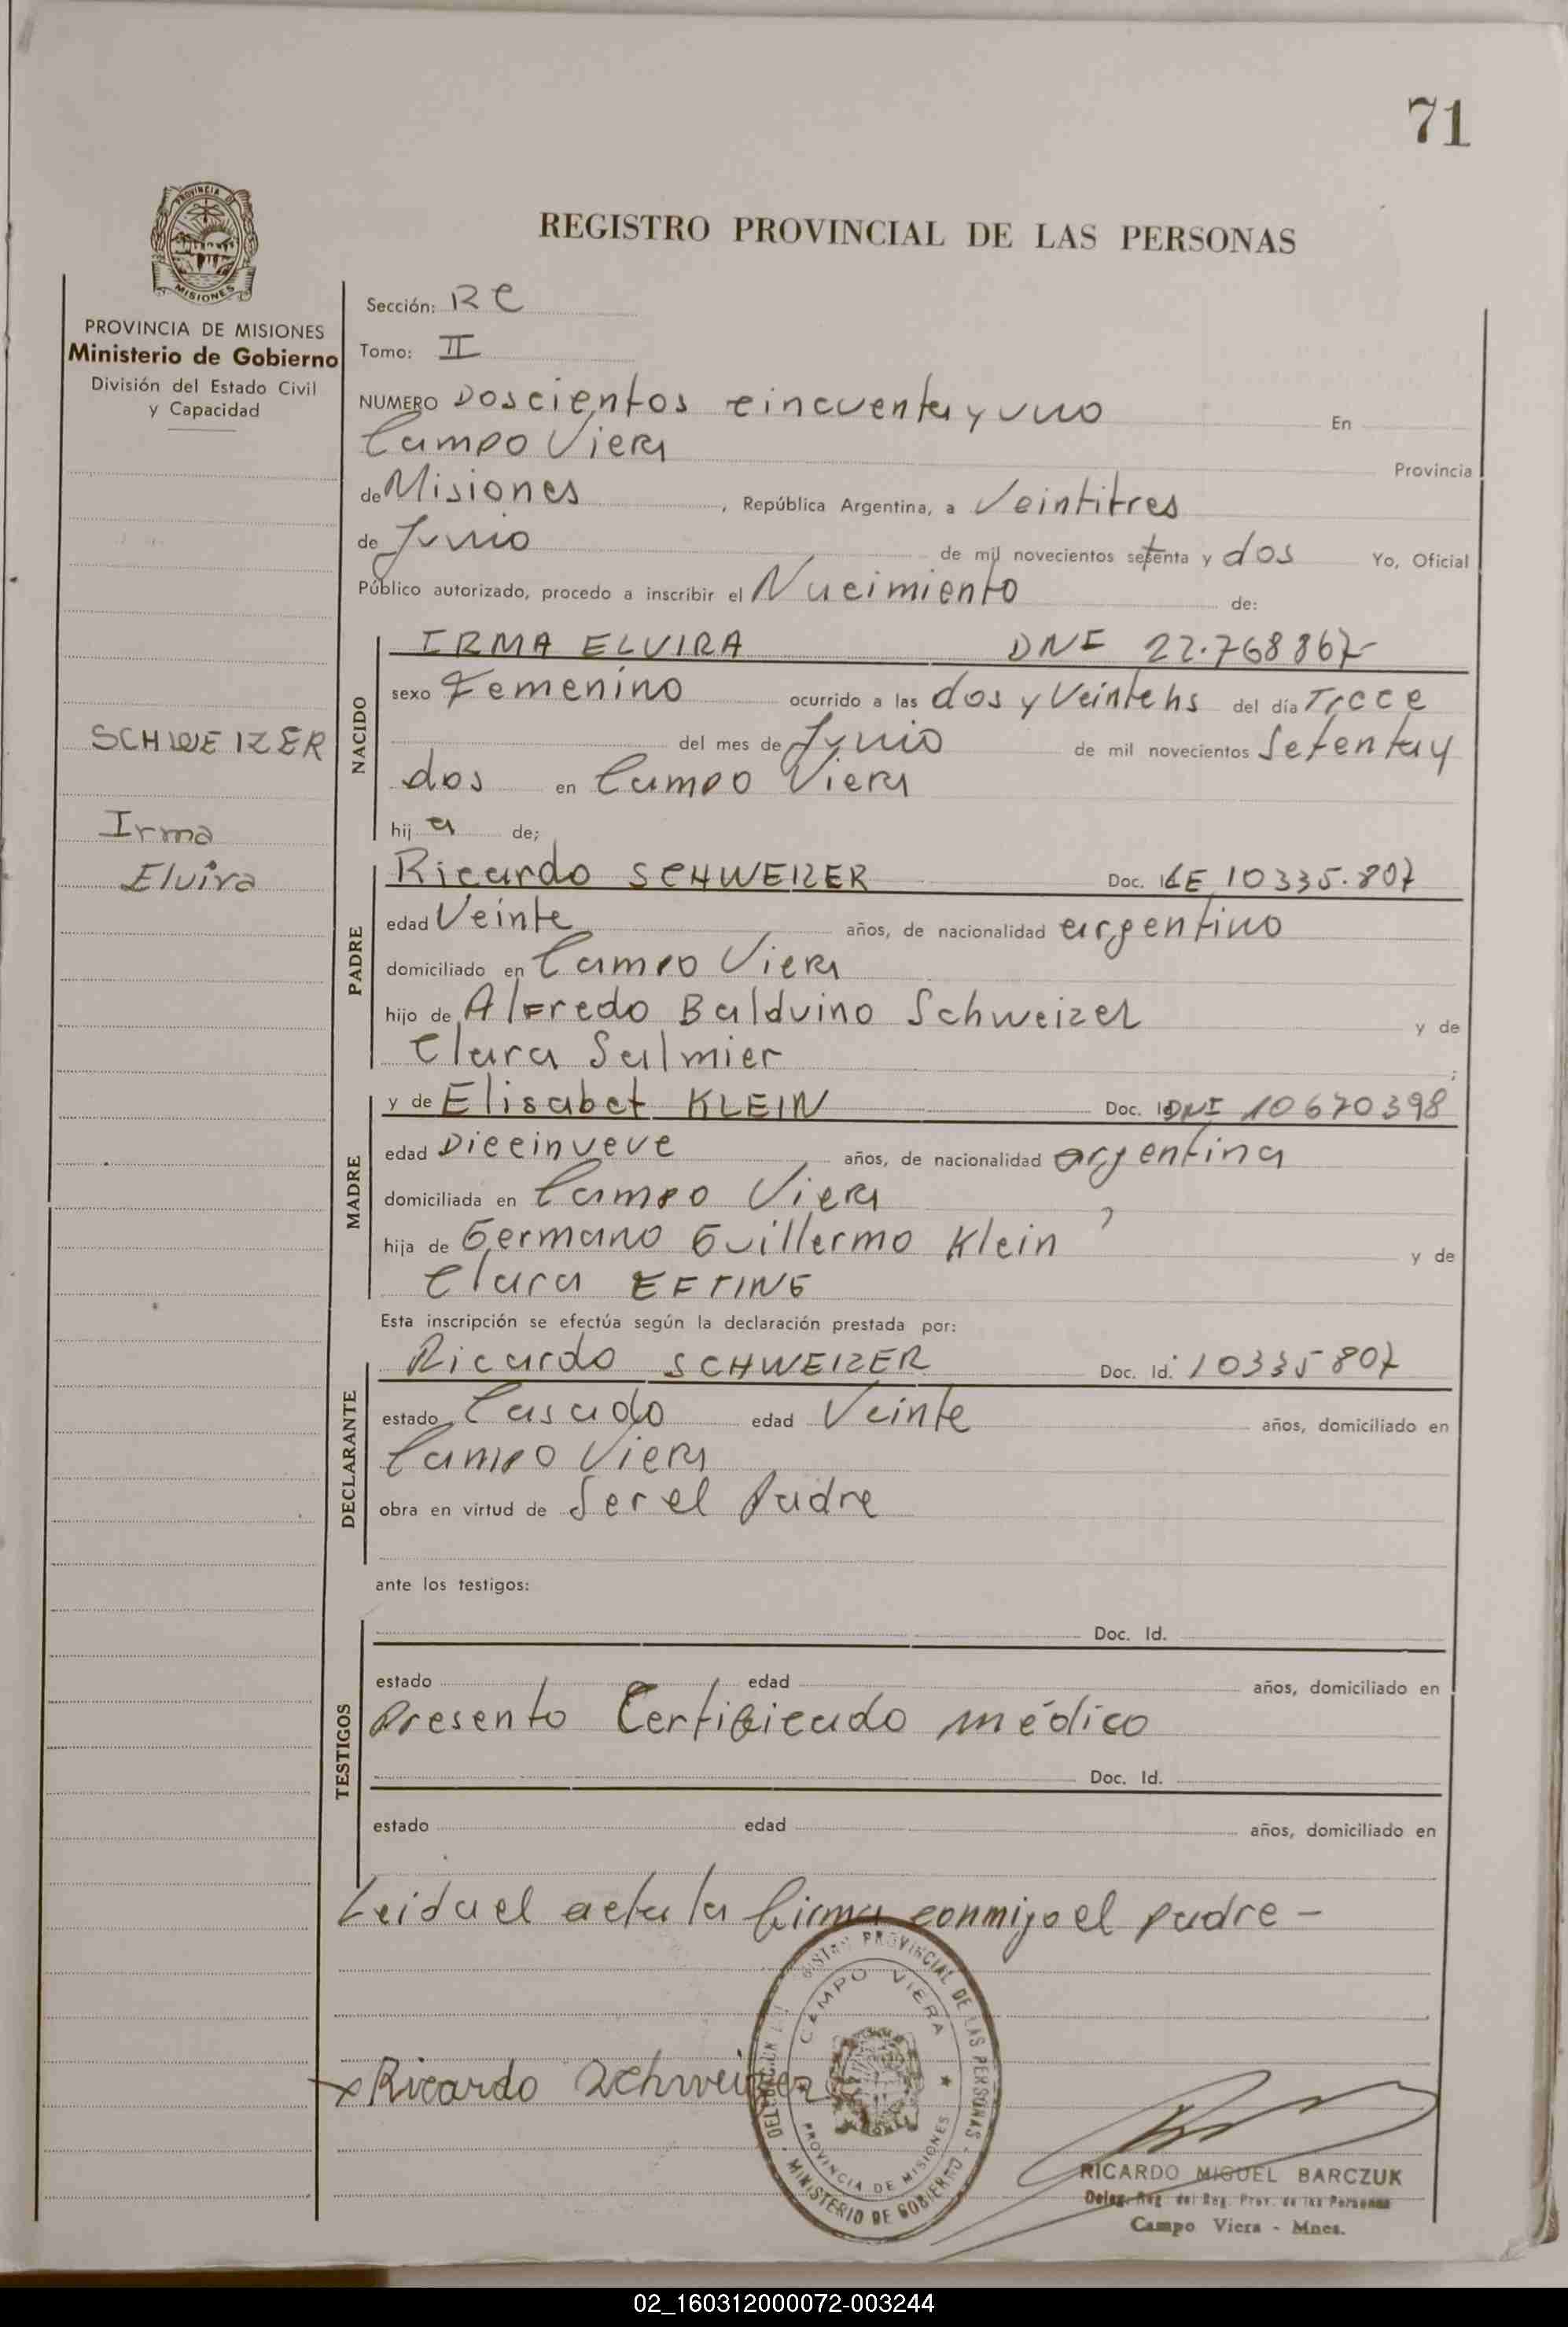 71
PROVINCIA DE
MISIONES
REGISTRO PROVINCIAL DE LAS PERSONAS
PROVINCIA DE MISIONES
Ministerio de Gobierno
División del Estado Civil
y Capacidad
SCHWEIZER
Irma
Elvira
Sección: RC
Tomo: II
NUMERO Doscientos cincuenta y uno En
Campo Viera Provincia
de Misiones, República Argentina, a Veintitres
de Junio de mil novecientos setenta y dos Yo, Oficial
Público autorizado, procedo a inscribir el Nacimiento de:
NACIDO
IRMA ELVIRA DNI 22.768867-
sexo Femenino ocurrido a las dos y Veinte hs del día Trece
del mes de Junio de mil novecientos Setenta y
dos en Campo Viera
hij a de;
PADRE
Ricardo SCHWEIZER Doc. LE 10335.807
edad Veinte años, de nacionalidad argentino
domiciliado en Campo Viera
hijo de Alfredo Balduino Schweizer y de
Clara Salmier ;
MADRE
y de Elisabet KLEIN Doc. DNI 10670398
edad Diecinueve años, de nacionalidad argentina
domiciliada en Campo Viera
hija de Germano Guillermo Klein y de
Clara EFTING
Esta inscripción se efectúa según la declaración prestada por:
DECLARANTE
Ricardo SCHWEIZER Doc. Id. 10335807
estado Casado edad Veinte años, domiciliado en
Campo Viera
obra en virtud de Ser el Padre
ante los testigos:
TESTIGOS
Doc. Id.
estado edad años, domiciliado en
Presento Certificado médico
Doc. Id.
estado edad años, domiciliado en
Leida el acta la firma conmigo el padre -
x Ricardo Schweizer
PROVINCIAL DE LAS PERSONAS - MINISTERIO DE GOBIERNO -
CAMPO VIERA
PROVINCIA DE MISIONES
RICARDO MIGUEL BARCZUK
Deleg. Reg. del Reg. Prov. de las Personas
Campo Viera - Mnes.
02_160312000072-003244